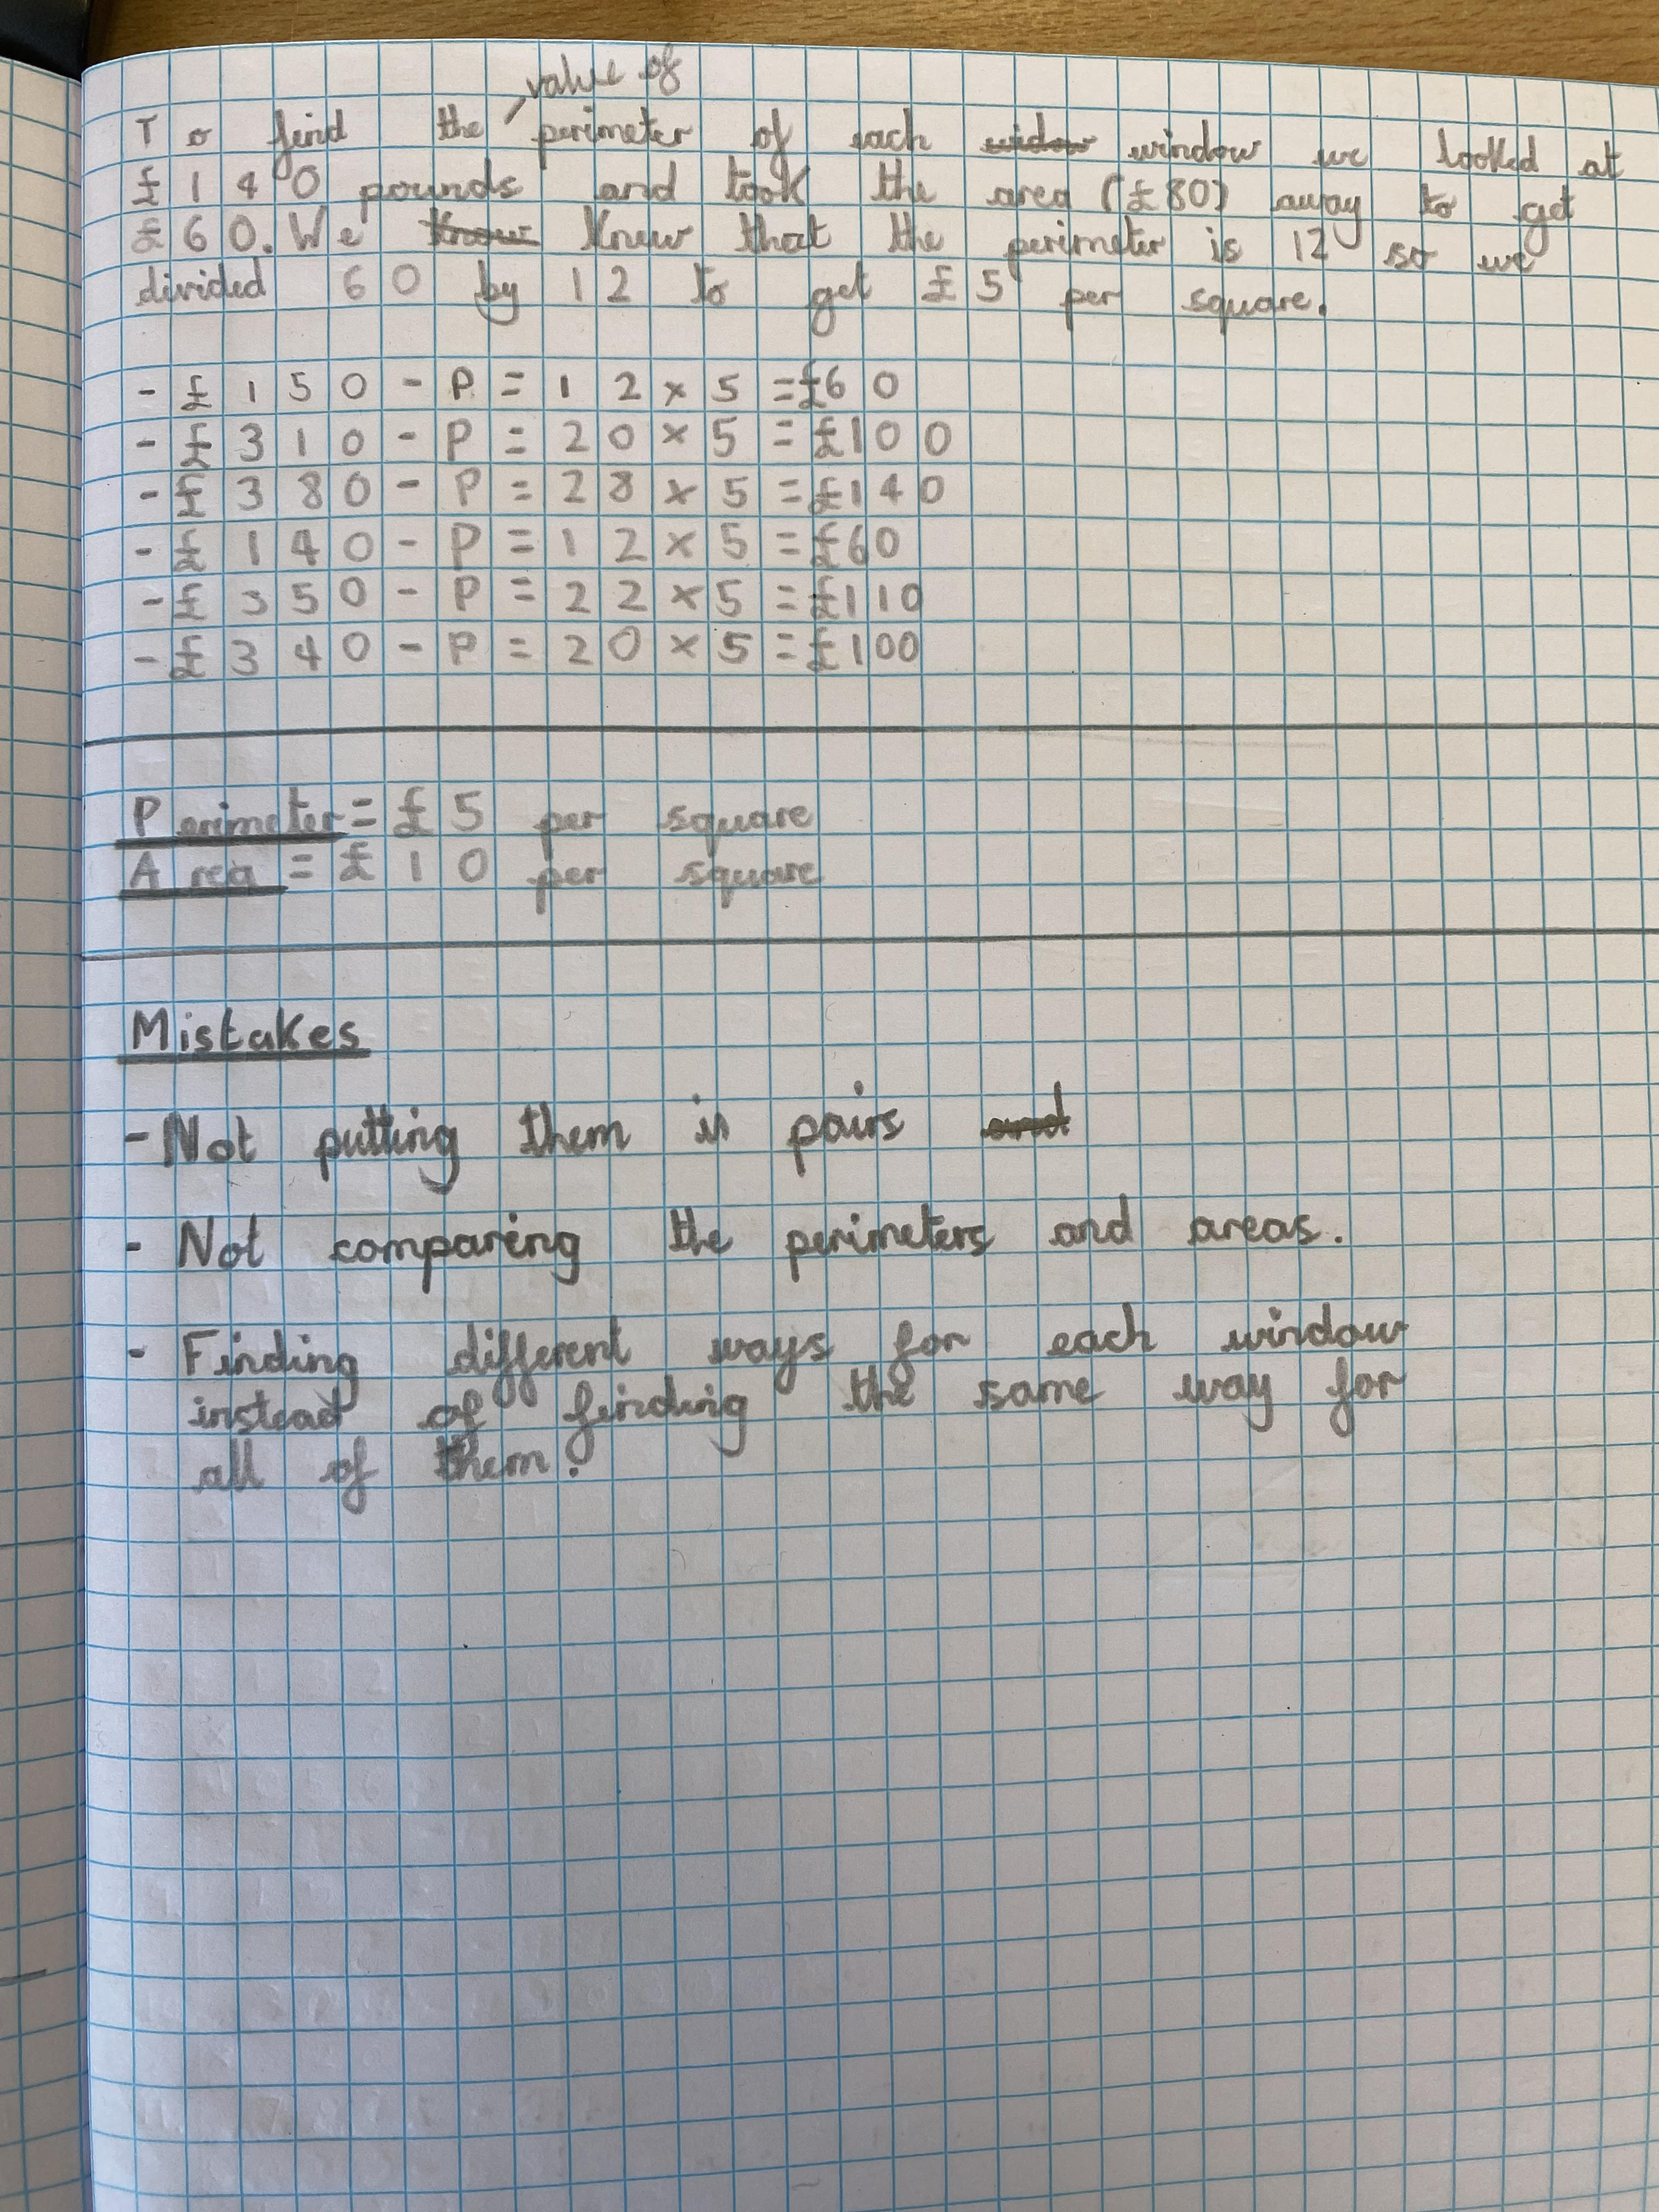 value of
To find the perimeter of each widow window we looked at
£140 pounds and took the area (£80) away to get
£60. We know knew that the perimeter is 12 so we
divided 60 by 12 to get £5 per square.
- £150 - P = 12 x 5 = £60
- £310 - P = 20 x 5 = £100
- £380 - P = 28 x 5 = £140
- £140 - P = 12 x 5 = £60
- £350 - P = 22 x 5 = £110
- £340 - P = 20 x 5 = £100
Perimeter = £5 per square
Area = £10 per square
Mistakes
- Not putting them in pairs and
- Not comparing the perimeters and areas.
- Finding different ways for each window
instead of finding the same way for
all of them.